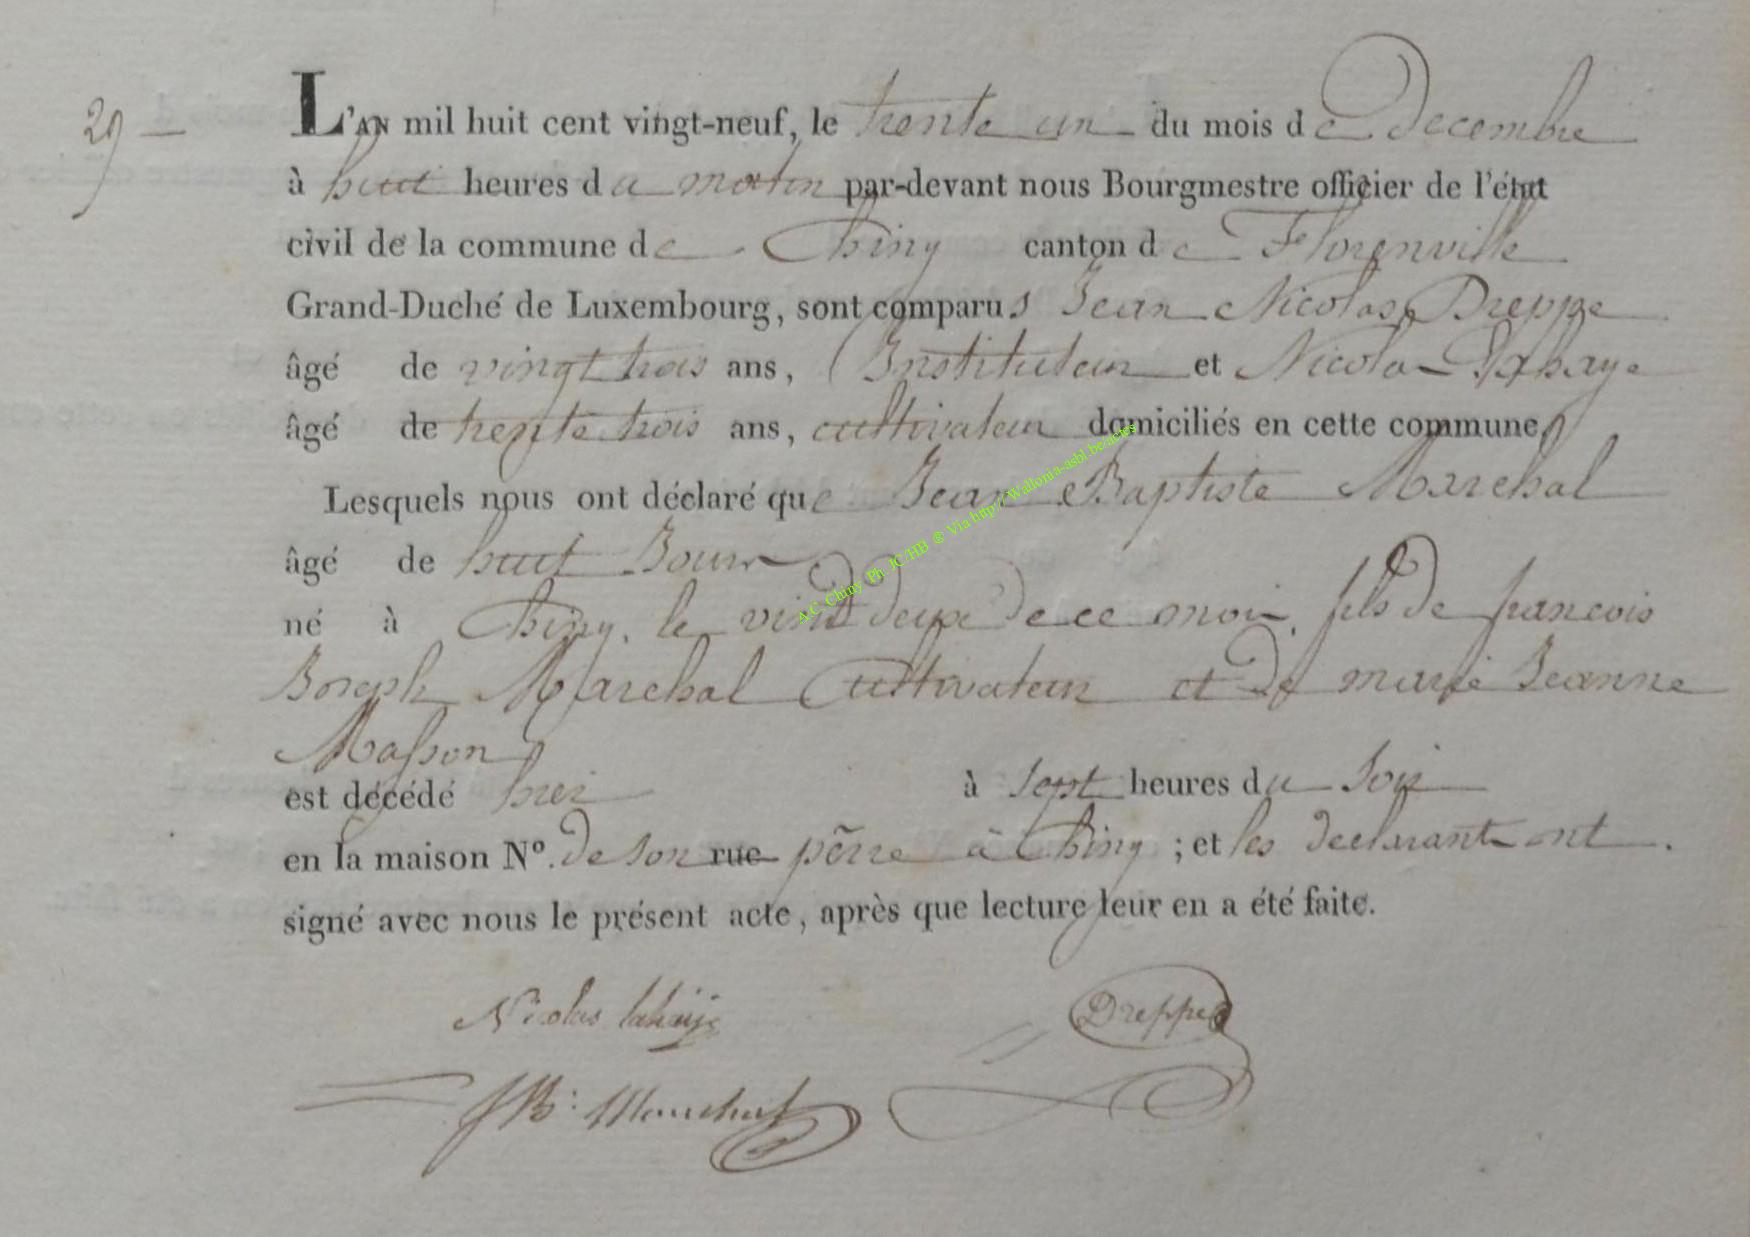 29 —
L'AN mil huit cent vingt-neuf, le trente un du mois de Decembre
à huit heures du matin par-devant nous Bourgmestre officier de l'état
civil de la commune de Chiny canton de Florenville
Grand-Duché de Luxembourg, sont comparus Jean Nicolas Dreppe
âgé de vingt trois ans, Instituteur et Nicolas Lahaye
âgé de trente trois ans, cultivateur domiciliés en cette commune,
Lesquels nous ont déclaré que Jean Baptiste Marchal
âgé de huit Jours
né à Chiny, le vingt deux de ce mois, fils de francois
Joseph Marchal Cultivateur et de marie Jeanne
Masson
est décédé hier à sept heures du soir
en la maison N°. de son rue père à Chiny ; et les declarants ont
signé avec nous le présent acte, après que lecture leur en a été faite.
Nicolas lahaije Dreppe
JB:
A.C. Chiny Ph. JC/HB ® Via http://Wallonia-asbl.be/actes